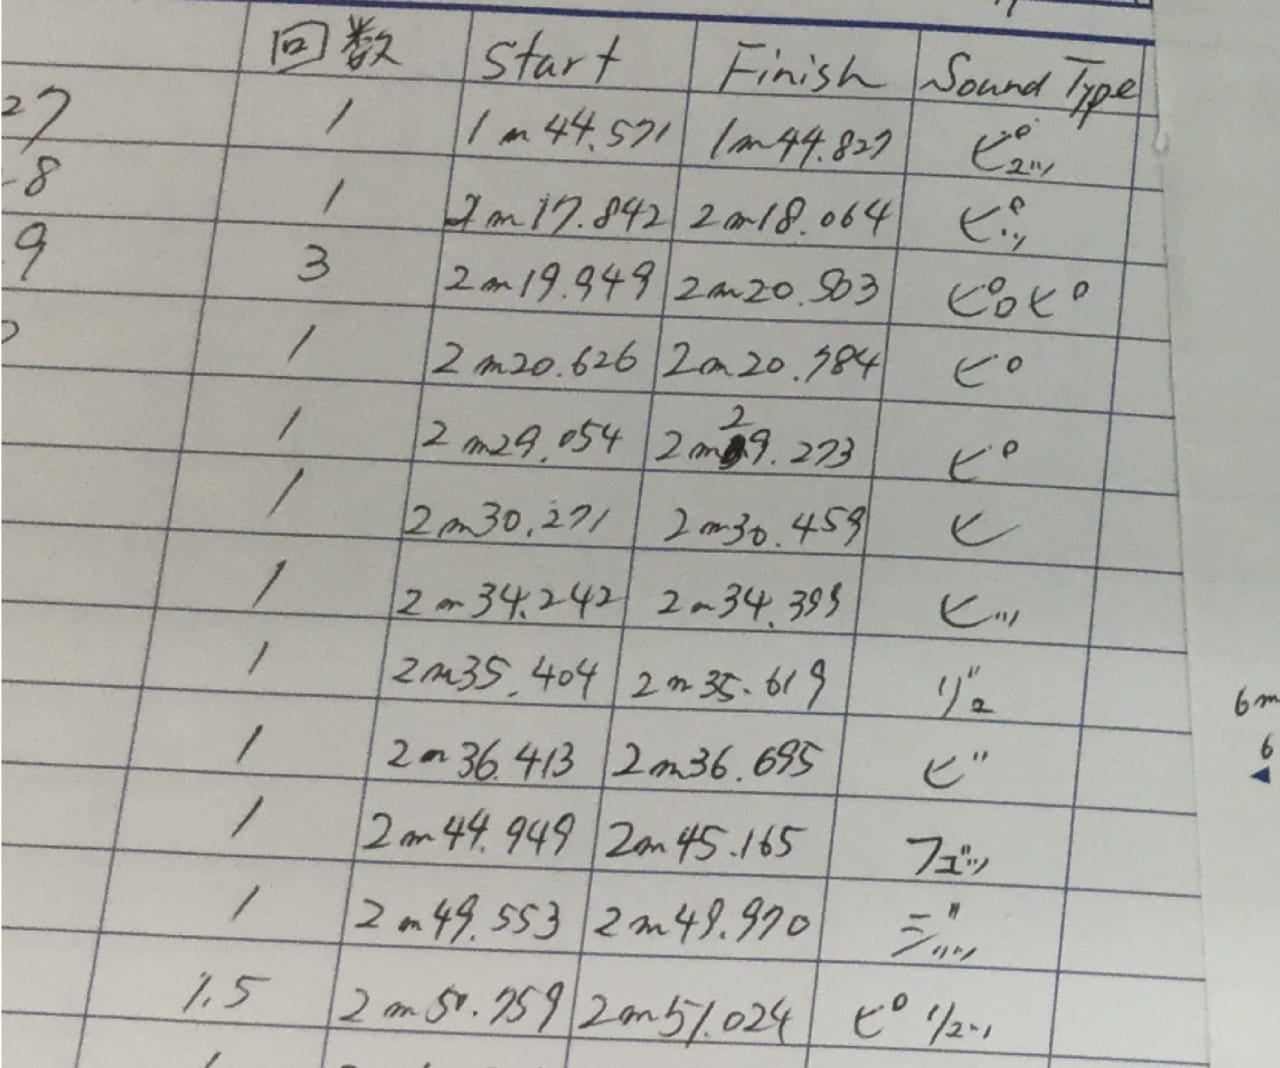 回数 Start Finish Sound Type
27 1 1m44.571 1m44.827 ピュッ
8 1 2m17.842 2m18.064 ピッ
9 3 2m19.949 2m20.503 ピロピ
1 2m20.626 2m20.784 ピ
1 2m29.054 2m29.273 ピ
1 2m30.271 2m30.459 ヒ
1 2m34.242 2m34.399 ヒッ
1 2m35.404 2m35.619
1 2m36.413 2m36.695 ビ
1 2m44.949 2m45.165
1 2m49.553 2m49.970
1.5 2m50.759 2m51.024 ピ
6m
6